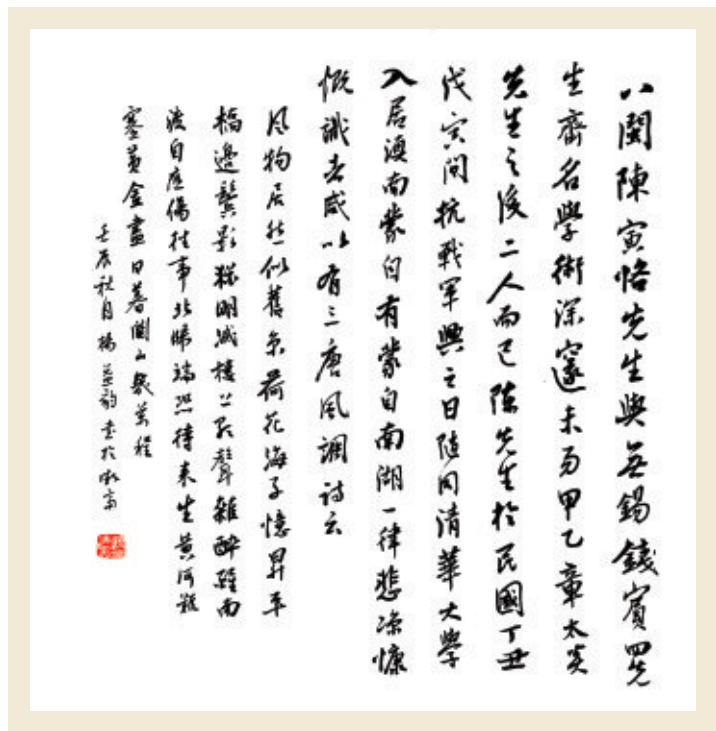 八閩陳寅恪先生與無錫錢賓四先
生齊名學術深邃未易甲乙章太炎
先生之後二人而已陳先生於民國丁丑
戊寅間抗戰軍興之日隨同清華大學
入居滇南蒙自有蒙自南湖一律悲涼慷
慨識者咸以有三唐風調詩云
風物居然似舊京荷花海子憶昇平
橋邊鬢影猶明滅樓上歌聲雜醉醒南
渡自應傷往事北歸端恐待來生黃河難
塞黃金盡日暮關山幾萬程
壬辰秋月楊韵書於齋